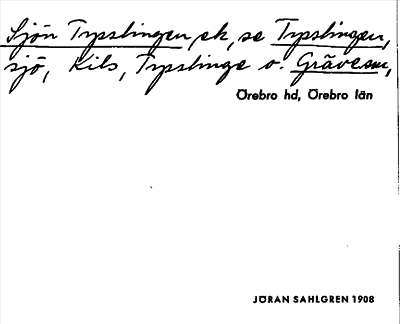 Sjön Tysslingen, ek, se Tysslingen,
sjö, Kils, Tysslinge o. Gräve snr,
Örebro hd, Örebro län
JÖRAN SAHLGREN 1908